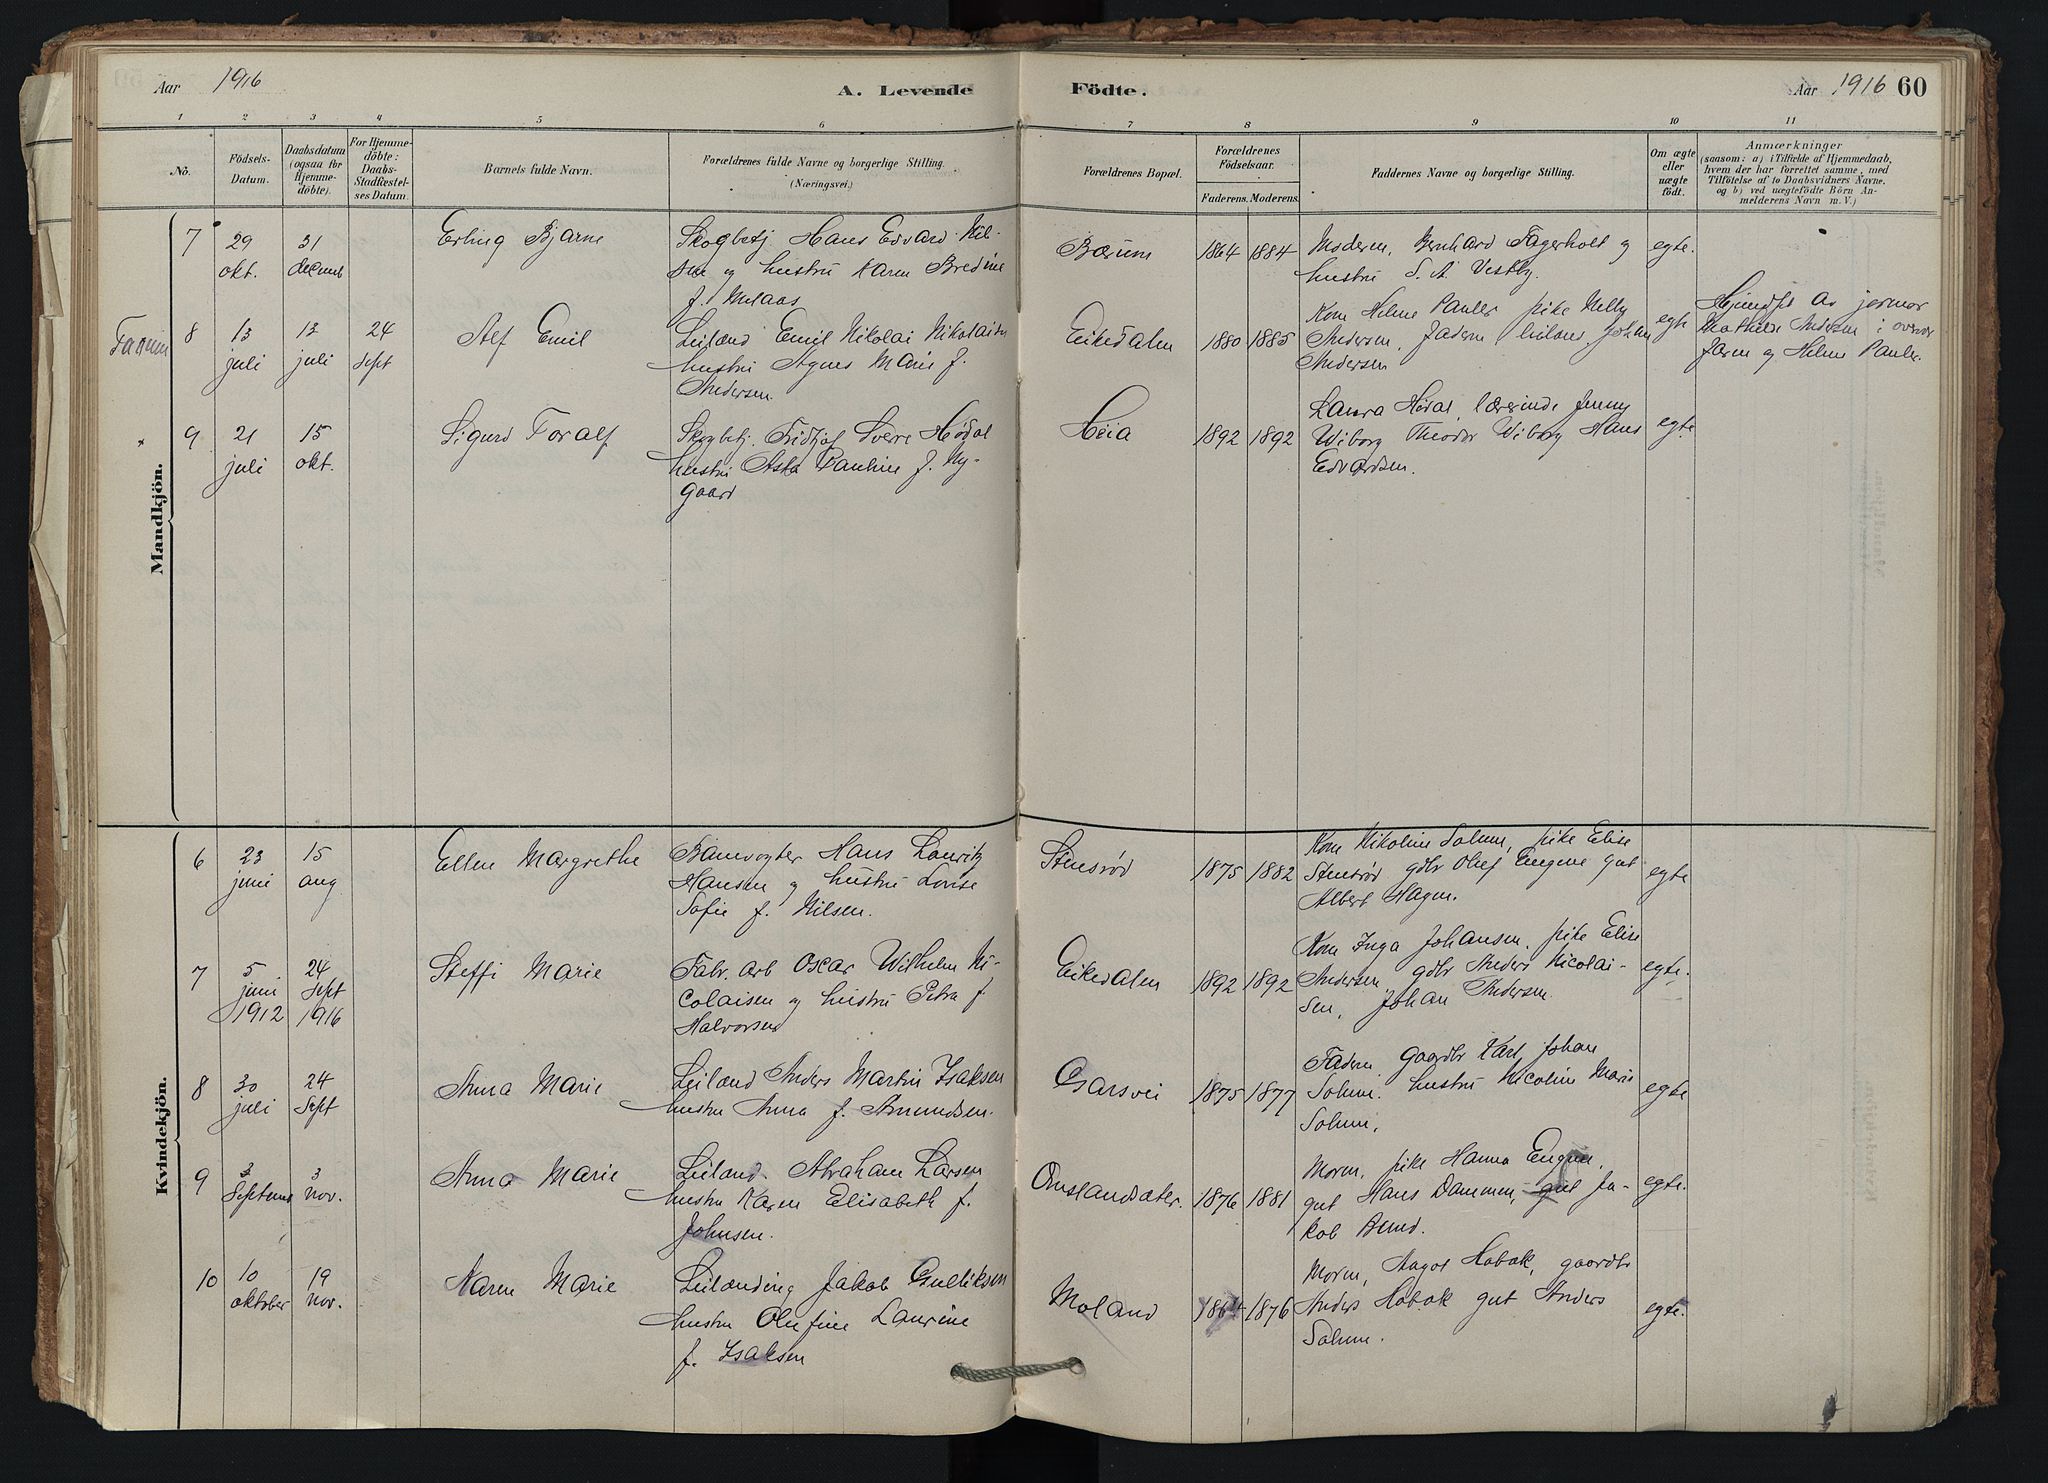 Aar 1916 A. Levende Födte. Aar 1916 60
1 2 3 4 5 6 7 8 9 10 11
No. Födsels-Datum. Daabsdatum (ogsaa for Hjemmedöbte). For Hjemmedöbte: Daabs-Stadfæstelses Datum. Barnets fulde Navn. Forældrenes fulde Navne og borgerlige Stilling. (Næringsvei.) Forældrenes Bopæl. Forældrenes Födselsaar. Faderens. Moderens. Faddernes Navne og borgerlige Stilling. Om ægte eller uægte födt. Anmærkninger (saasom: a) i Tilfælde af Hjemmedaab, hvem der har forrettet samme, med Tilföielse af to Daabsvidners Navne, og b) ved uægtefödte Börn Anmelderens Navn m. V.)
Mandkjön.
7 29 okt. 31 decemb Erling Bjarne Skogbetj. Hans Edvard Nil-
sen og hustru Karen Bredine
f. Melaas
Bærum 1864 1884 Moderen, Bernhard Fagerholt og
hustru S. A. Vestby. egte.
8 13 juli 13 juli 24 Sept Alf Emil Leilænd Emil Nikolai Nikolaisen
hustru Agnes Marie f.
Andersen
Eikedalen 1880 1885 Kone Helene Pauler pike Nelly
Andersen, Faderen leilænd. Johan
Andersen egte
Hjemdpt av jormor
Mathilde Andersen i overvær
Faren og Helene Pauler.
9 21 juli 15 okt. Sigurd Toralf Skogbetj. Fridtjof Sverre Hødal
hustru Asta Pauline f. Ny-
gaard
Heia 1892 1892 Laura Hødal, lærerinde Jenny
Wiborg Theodor Wiborg Hans
Edvardsen. egte.
Kvindekjön.
6 23 juni 15 aug Ellen Margrethe Banevogter Hans Lauritz
Hansen og hustru Lovise
Sofie f. Nilsen.
Stensrød 1875 1882 Kone Nikoline Solum, pike Elise
Stensrød gdbr Olef Eugene gut
Albert Hagen. egte
7 5 juni 1912 24 Sept 1916 Steffi Marie Fabr. arb Oscar Wilhelm Ni-
colaisen og hustru Petra f
Halvorsen
Eikedalen 1892 1892 Kone Inga Johansen, pike Elise
Andersen gdbr Anders Nicolai-
sen, Johan Andersen. egte.
8 30 juli 24 Sept Anna Marie Leilænd Anders Martin Isaksen
hustru Anna f. Amundsen.
Garsvei 1875 1877 Faderen Gaardbr Karl Johan
Solum. hustru Nicoline Marie
Solum. egte
9 3 Septemb 3 nov. Anna Marie Leilænd. Abraham Larsen
hustru Karen Elisabeth f.
Johnsen.
Omslandsæter. 1876 1881 Moren, pike Hanna Eugene,
gut Hans Dammen, gut Ja-
kob Bend. egte.
10 10 oktober 19 nov. Karen Marie Leilænding Jakob Gulliksen
hustru Olefine Laurine
f. Isaksen
Moland 1864 1876 Moren, Aagot Hobæk, gaardbr
Anders Hobæk gut Anders
Solum. egte.